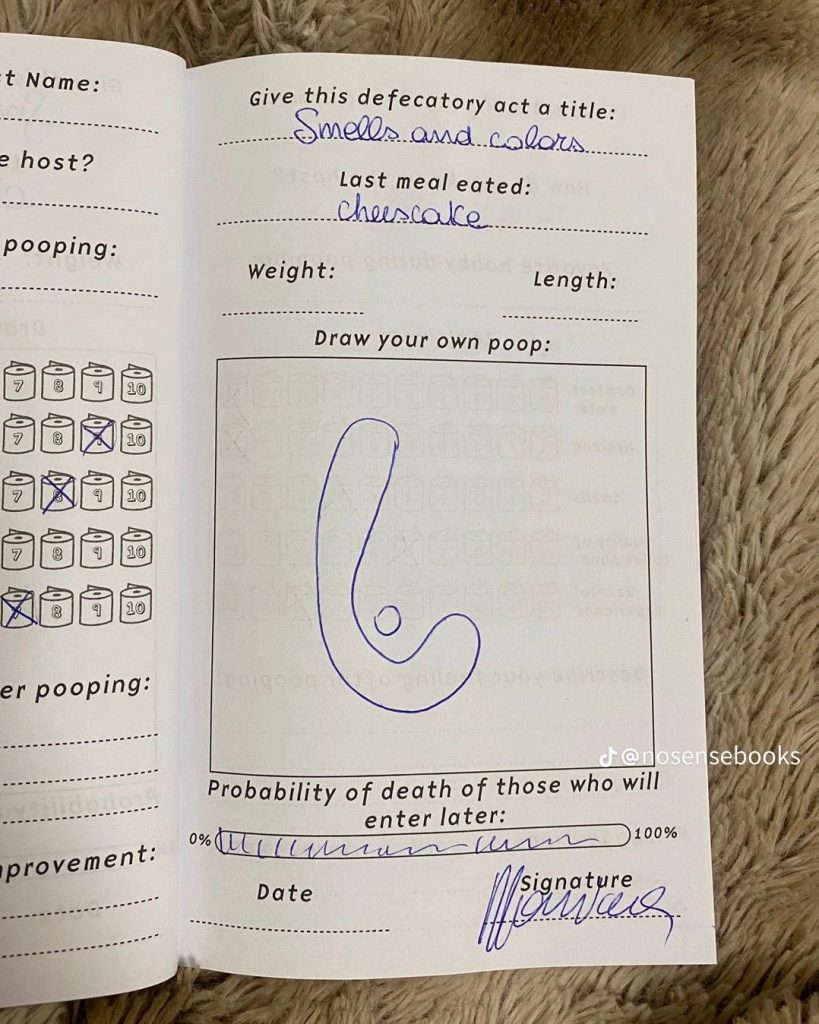 t Name:
e host?
pooping:
7 8 9 10
7 8 9 10
7 8 9 10
7 8 9 10
7 8 9 10
er pooping:
mprovement:
Give this defecatory act a title:
Smells and colors
Last meal eated:
cheescake
Weight:
Length:
Draw your own poop:
@nosensebooks
Probability of death of those who will
enter later:
0% 100%
Date
Signature